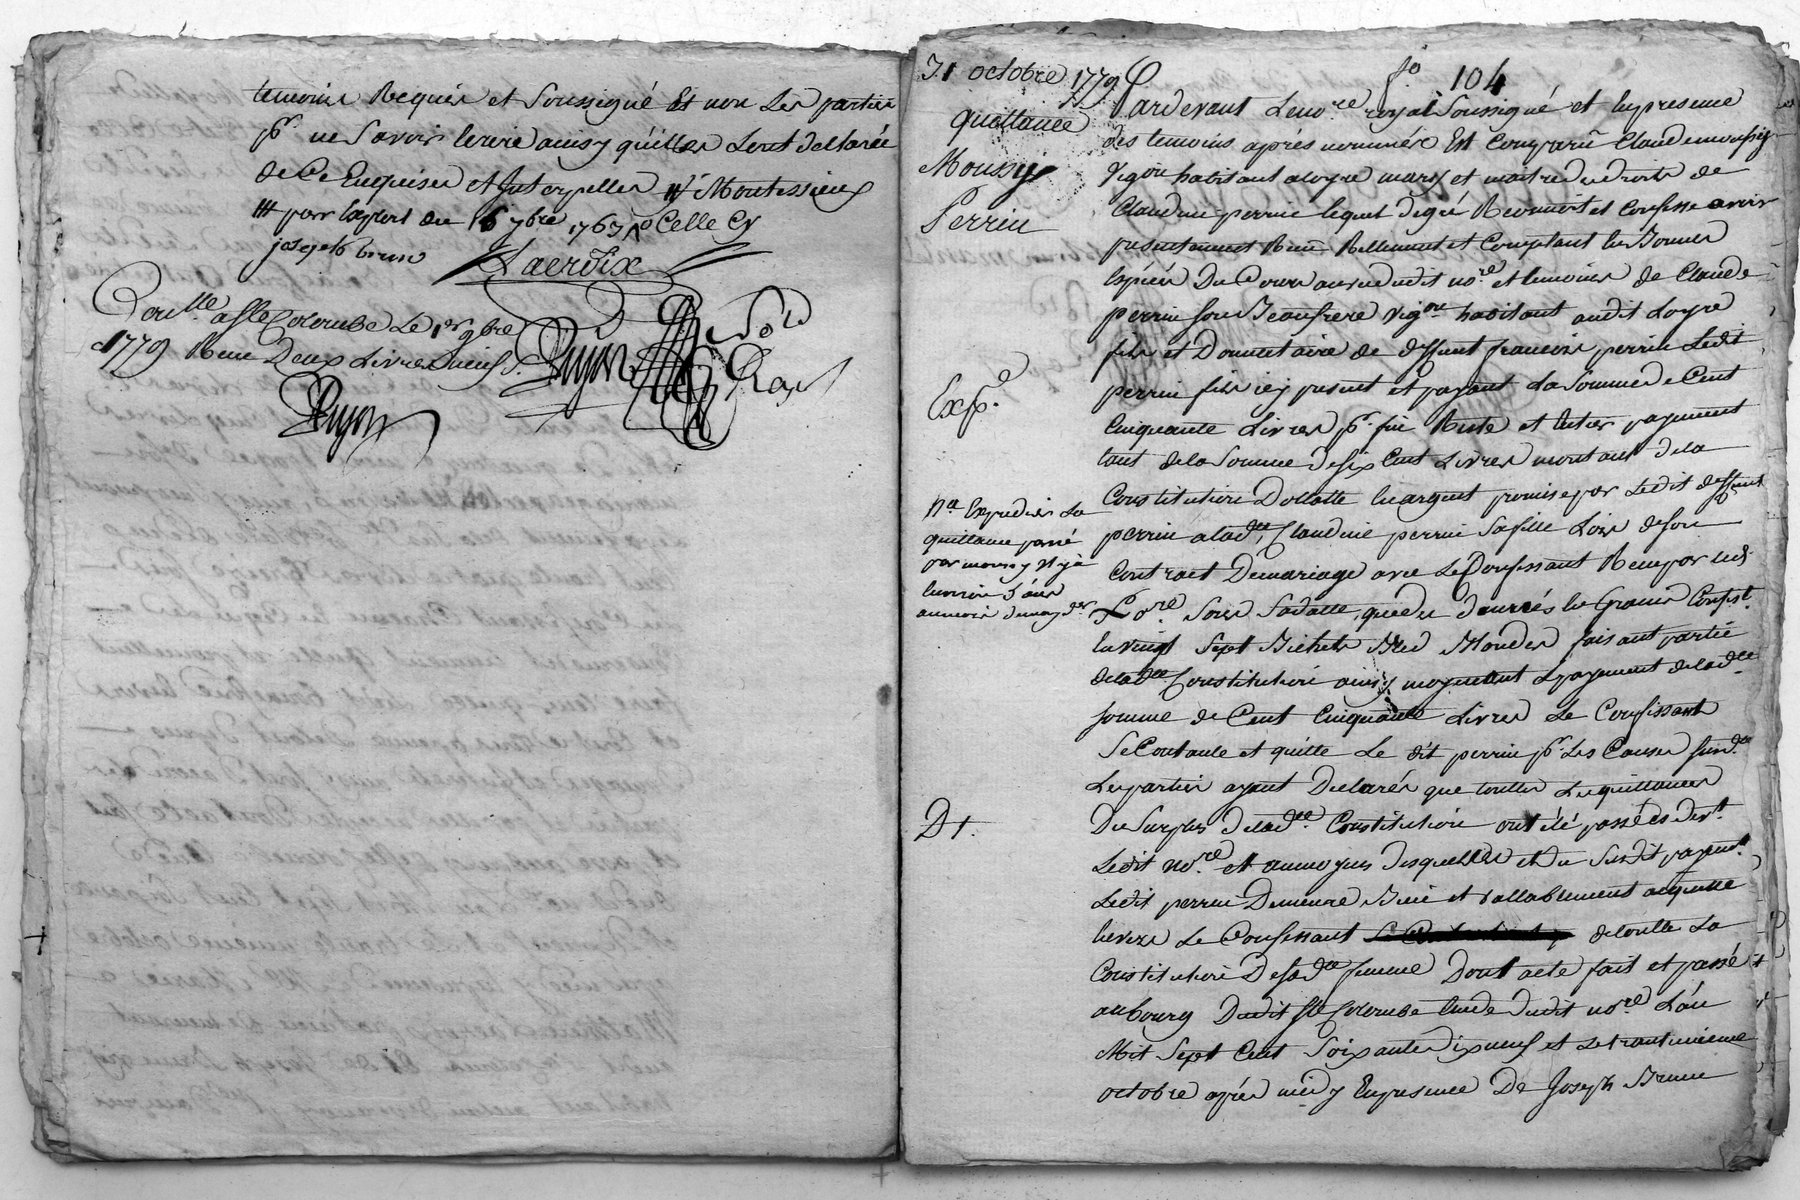 temoins Requis et Soussigné Et non Les parties
pr. ne Savoir Ecrire ainsy qu'illes Lont declarée
de Ce Enquises et Interpellés Montessieux
par Exploit du 16 7bre 1763 Celle Cy
joseph brun
Lacroix
Contllé a Ste Colombe Le 1er 9bre
1779 Reçu Deux Livres neuf s.
Puyon
Puyon
No re
Roy
fo 104
31 octobre 1779
quittance
Moussy
Perrin
Expe.
na Expedier La
quittance passé
par moussy Et ja
D 1.
Pardevant Le nore. royal Soussigné et En presence
des temoins après nommés Est Comparu Claude moussy
Vigon habitant a loyre mary et maitre des droits de
Claudine perrin lequel de gré Reconnoit et Confesse avoir
presentement Reçu Réllement et Comptant En Bonnes
Espéces Du Cours au vu dudit nore. et temoins de Claude
perrin son Beaufrere Vigon habitant audit Loyre
fils et Donnataire de deffunt francois perrin Ledit
perrin fils icy présent et payant La Somme de Cent
Cinquante Livres pr. fin Reste et Entier payement
tant de la Somme de Six Cent Livres montant de la
Constitution Dotalle En argent promise par Ledit deffunt
perrin a lade. Claudine perrin Sa fille Lors de Son
Contract De mariage avec Le Confessant Reçu par led.
nore. Sous Sa datte, que des denrées En Grains Consist.
En vingt Sept Bichets Bled Blondée faisant partie
de lade. Constitution ainsy moyennant Le payement de lade.
Somme de Cent Cinquante Livres Le Confessant
Se Contante et quitte Le dit perrin pr. Les Causes Susd.
Les parties ayant Declarés que touttes Les quittances
Du Surplus de lade. Constitution ont été passées devt.
Ledit nore. et au moyens desquelles et du Susdit payemt.
Ledit perrin Demeure Bien et vallablement acquitté
Envers Le Confessant de toutte La
Constitution De Sade. femme Dont acte fait et passé
au bourg Dudit Ste Colombe Etude dudit nore. L'an
Mil Sept Cent Soixante dix neuf et Le trante unieme
octobre après midy En presence De Joseph Brun